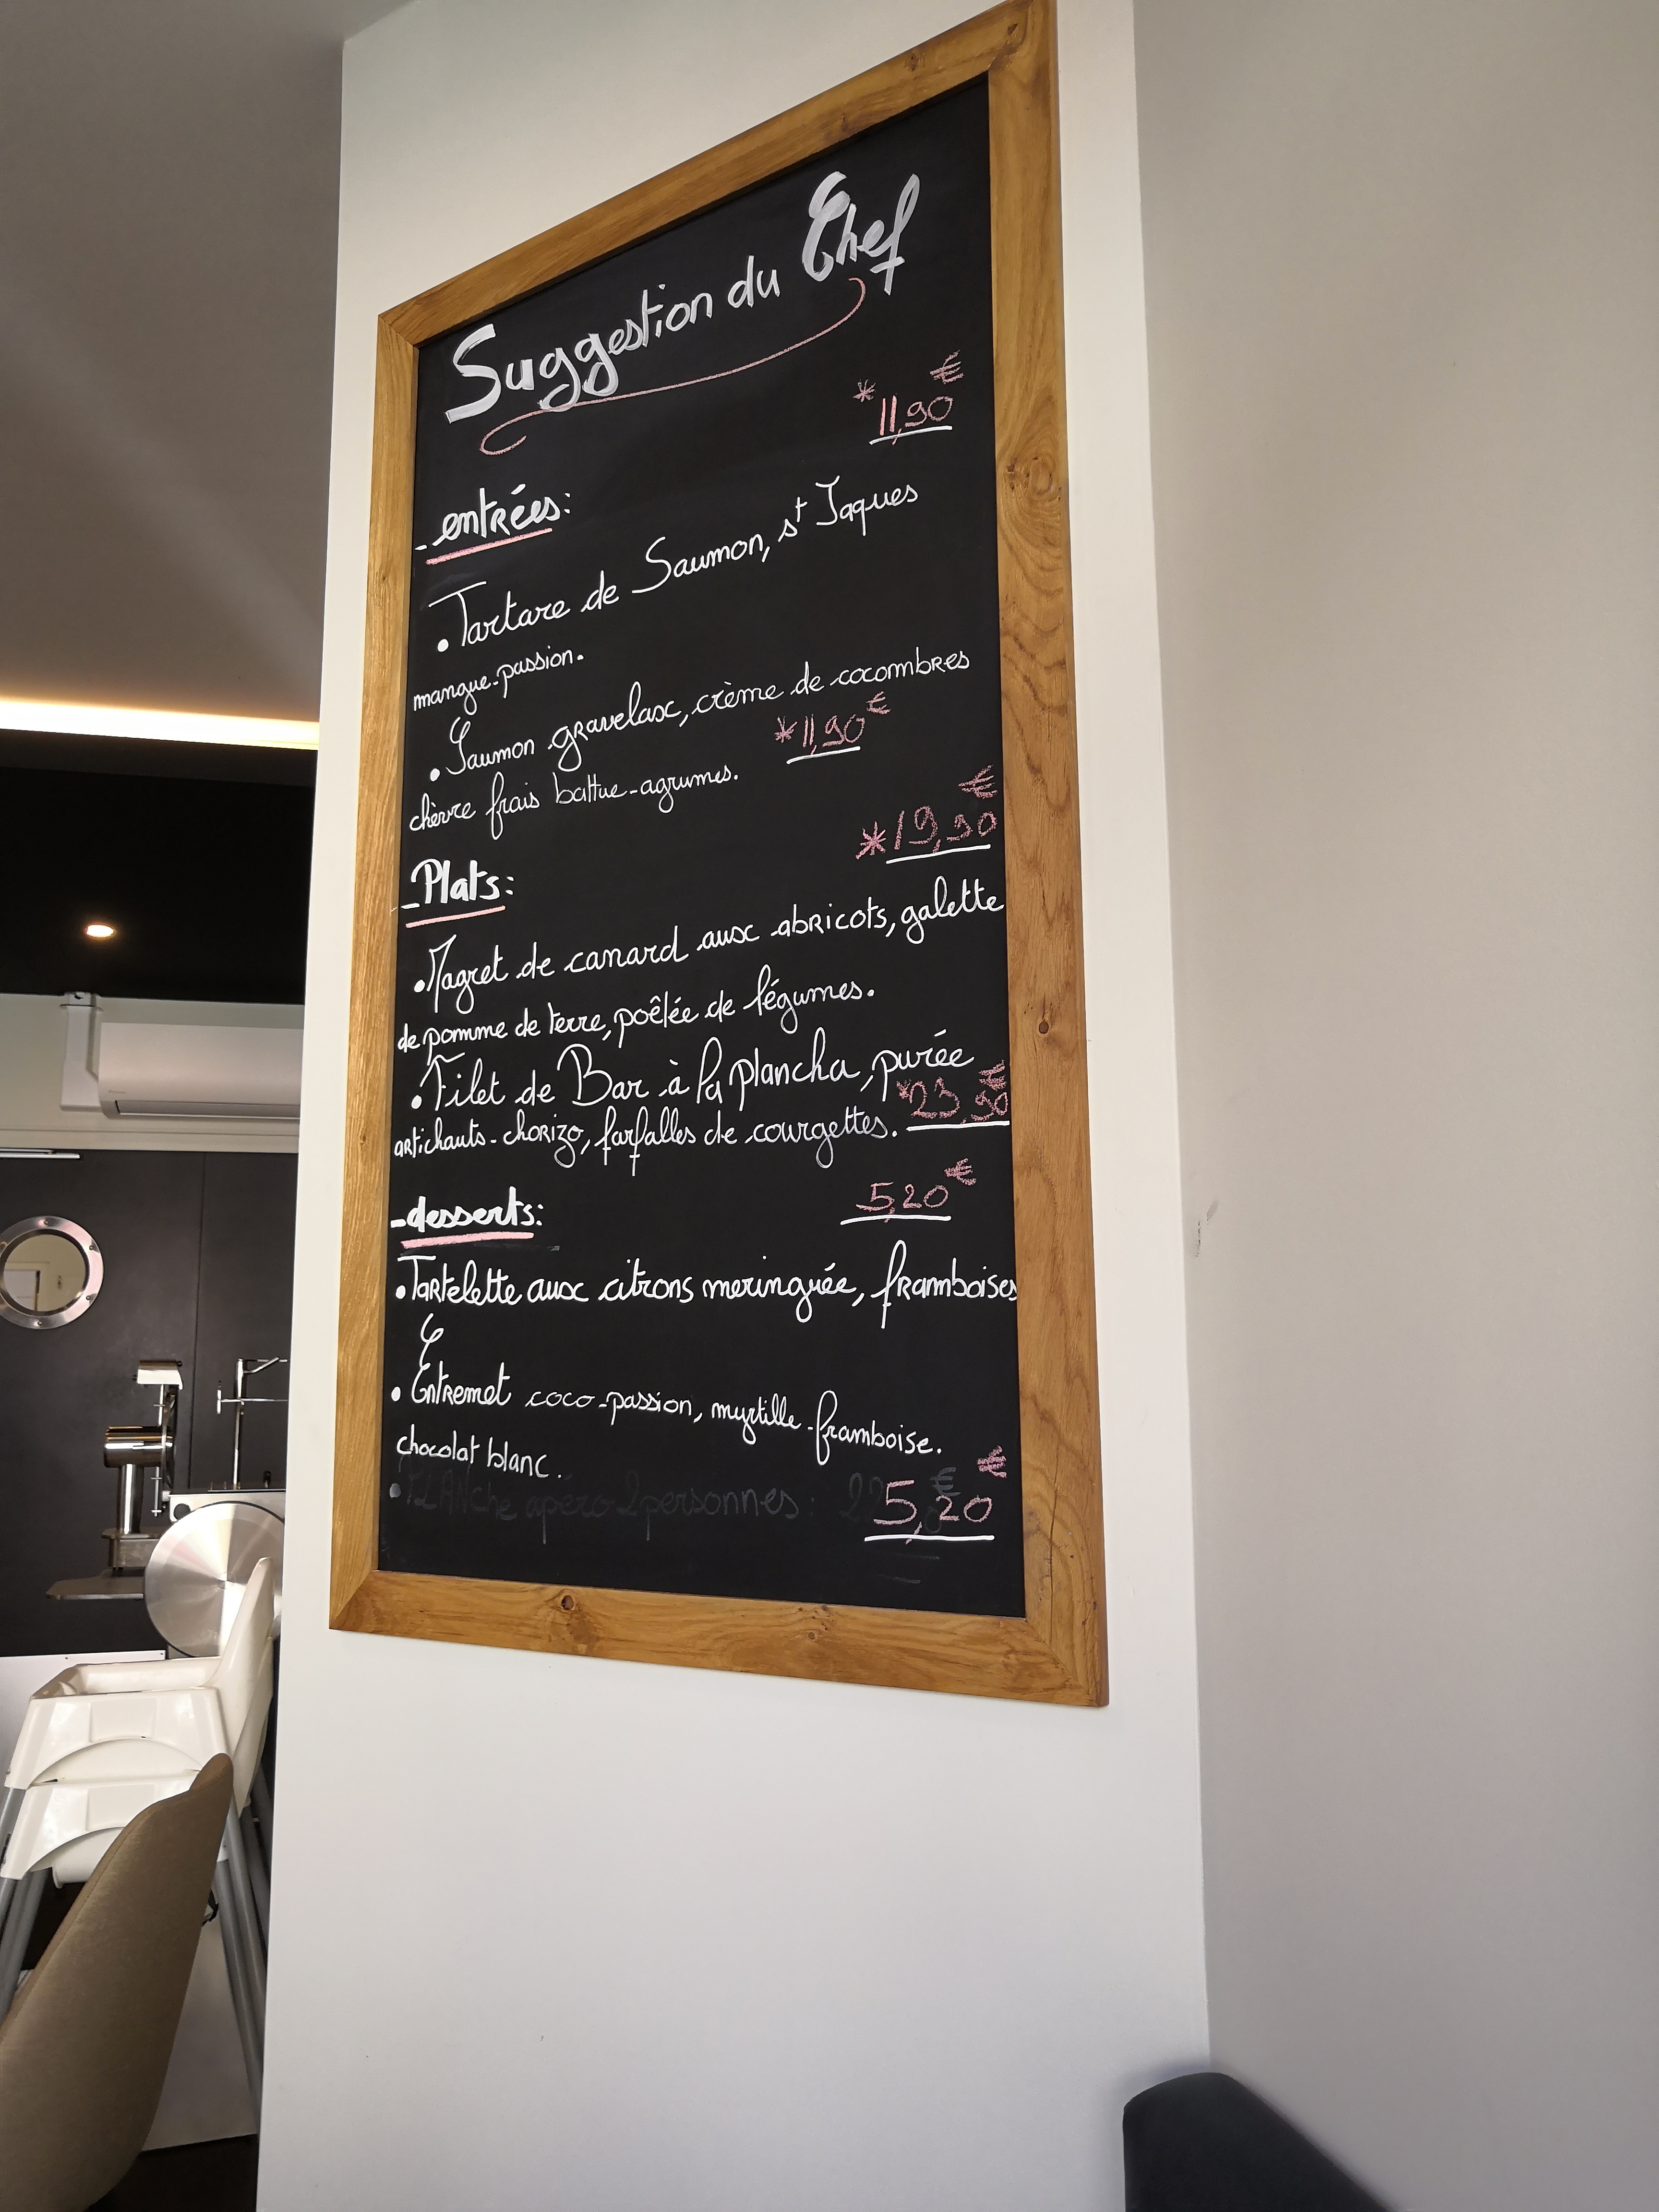 Suggestion du Chef
*11,90€
_entrées:
• Tartare de Saumon, st Jaques
mangue-passion.
• Saumon gravelax, crème de cocombres
chèvre frais battue-agrumes. *11,90€
*19,90€
_Plats:
• Magret de canard aux abricots, galette
de pomme de terre, poêlée de légumes.
• Filet de Bar à la plancha, purée
artichauts-chorizo, farfalles de courgettes. *23,90€
_desserts: 5,20€
• Tartelette aux citrons meringuée, framboises
• Entremet coco-passion, myrtille-framboise.
chocolat blanc.
• PLANche apéro 2 personnes:
5,20€